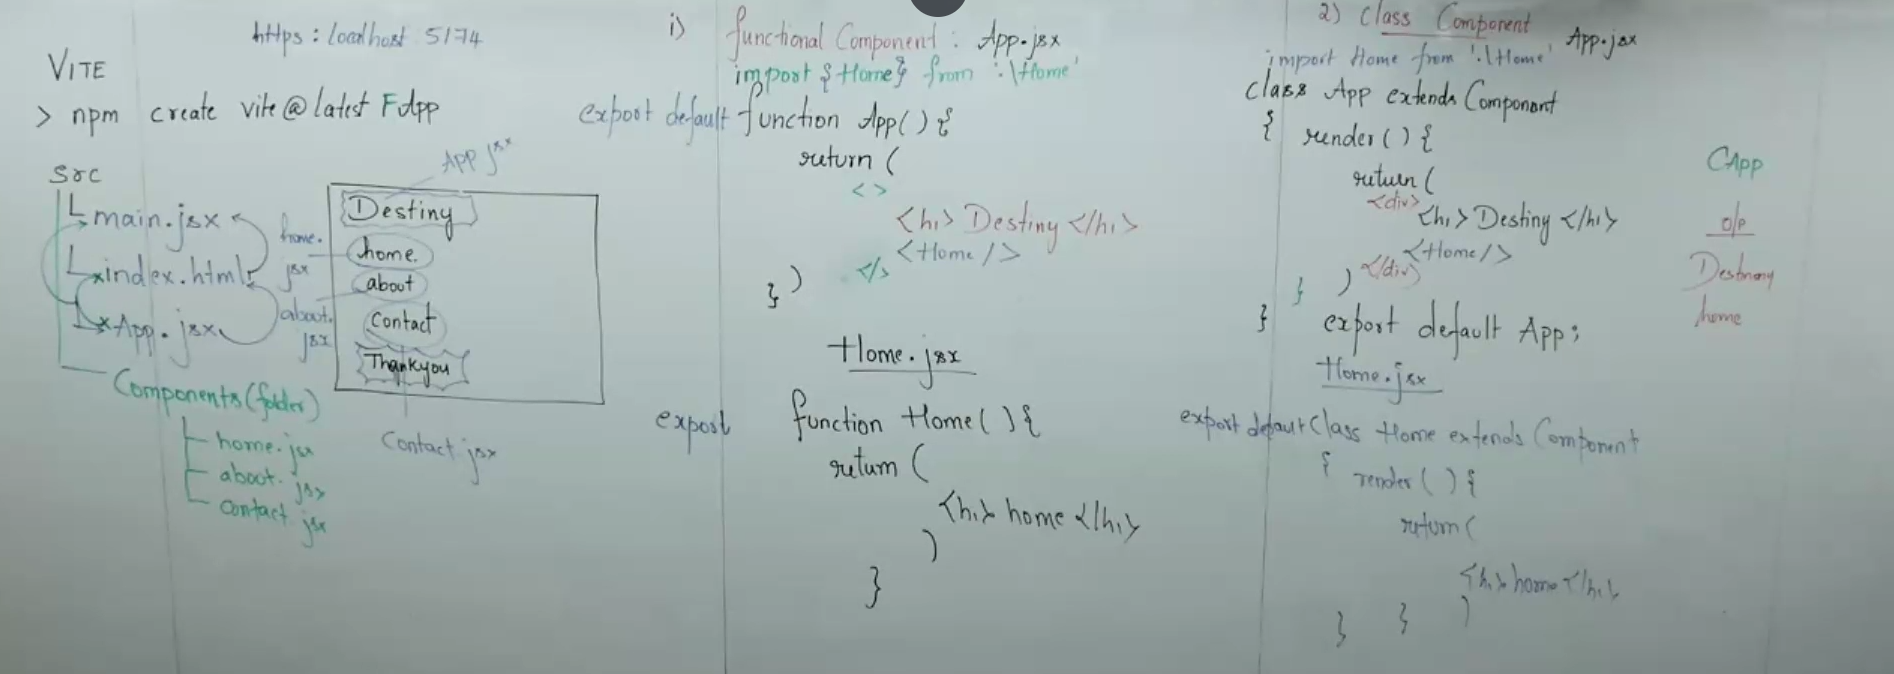 https : localhost 5174
VITE
> npm create vite@latest FApp
src
main.jsx
index.html
App.jsx
Components (folder)
home.jsx
about.jsx
contact.jsx
App jsx
Destiny
home.
about
Contact
Thankyou
home.
jsx
about.
jsx
Contact jsx
i) functional Component : App.jsx
import {Home} from '.\Home'
export default function App() {
return (
<>
<h1> Destiny </h1>
<Home/>
</>
)
}
Home.jsx
export function Home() {
return (
<h1> home </h1>
)
}
2) Class Component App.jsx
import Home from '.\Home'
class App extends Component
{ render() {
return (
<div>
<h1> Destiny </h1>
<Home/>
</div>
)
}
}
export default App;
Home.jsx
export defaut Class Home extends Component
{ render() {
return (
<h1> home </h1>
)
}
}
CApp
o/p
home